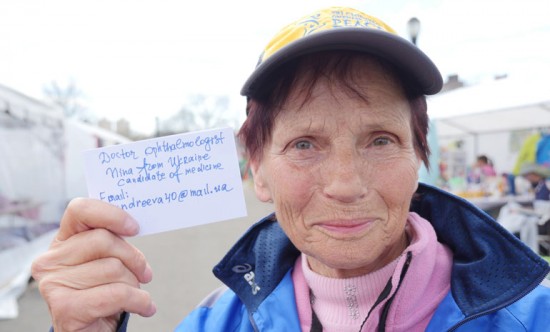 PEACE
Doctor Ophthalmologist
Nina from Ukraine
candidate of medicine
Email:
ndreeva40@mail.ua
asics